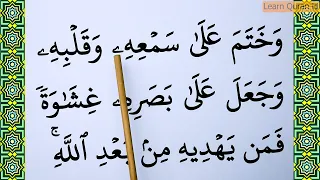 Learn Quran
وَخَتَمَ عَلَىٰ سَمْعِهِۦ وَقَلْبِهِۦ
وَجَعَلَ عَلَىٰ بَصَرِهِۦ غِشَـٰوَةً
فَمَن يَهْدِيهِ مِنۢ بَعْدِ ٱللَّهِ ۚ